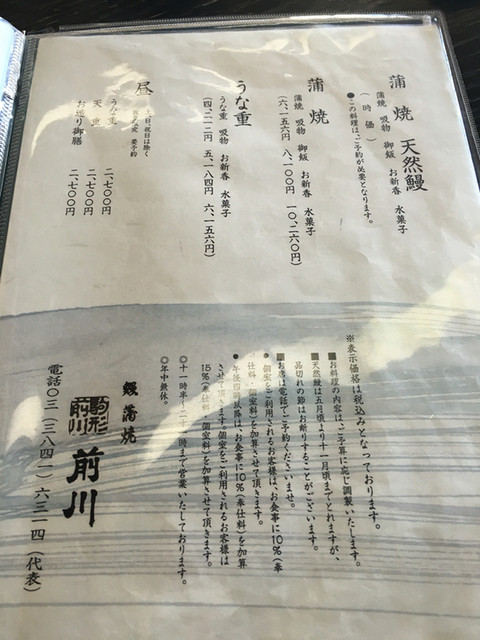 蒲焼 天然鰻
蒲焼 吸物 御飯 お新香 水菓子
（時価）
●この料理は、ご予約が必要となります。
蒲焼
蒲焼 吸物 御飯 お新香 水菓子
（六、一五六円 八、一〇〇円 一〇、二六〇円）
うな重
うな重 吸物 お新香 水菓子
（四、二一二円 五、一八四円 六、一五六円）
昼
土日、祝日は除く
要予約
うな重 二、七〇〇円
天重 二、七〇〇円
お造り御膳 二、七〇〇円
※表示価格は税込みとなっております。
■お料理の内容は、ご予算に応じ調製いたします。
■天然鰻は五月頃より十一月頃までとれますが、
品切れの節はお断りすることがございます。
■お席は電話でご予約くださいませ。
●個室をご利用されるお客様は、お食事に10％（奉
仕料・個室料）を加算させて頂きます。
●午後四時以降は、お食事に10％（奉仕料）を加算
させて頂きます。個室をご利用されるお客様は
15％（奉仕料・個室料）を加算させて頂きます。
○十一時半〜二十一時まで営業いたしております。
○年中無休。
鰻蒲焼
駒形
前川
前川
電話〇三（三八四一）六三一四（代表）